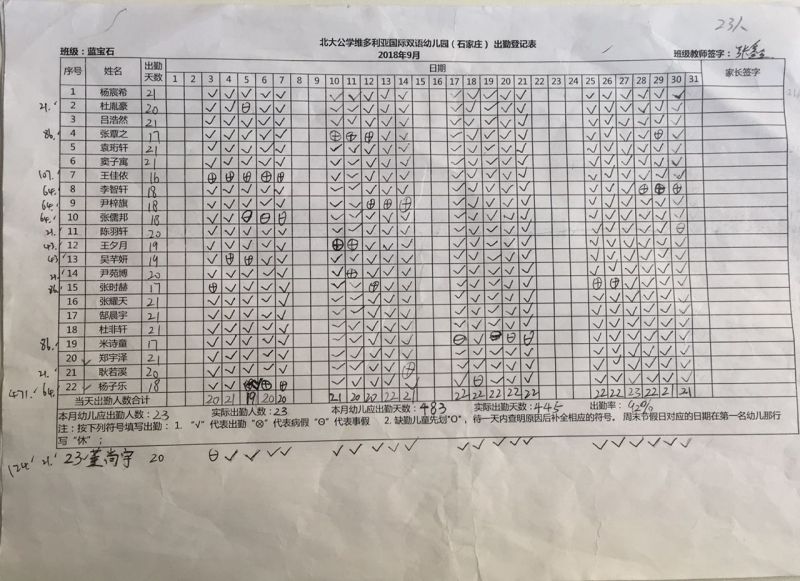 23人
北大公学维多利亚国际双语幼儿园（石家庄） 出勤登记表
班级：蓝宝石 2018年9月 班级教师签字：
序号 姓名 出勤天数 日期 家长签字
1 2 3 4 5 6 7 8 9 10 11 12 13 14 15 16 17 18 19 20 21 22 23 24 25 26 27 28 29 30 31
1 杨宸希 21 √ √ √ √ √ √ √ √ √ √ √ √ √ √ √ √ √ √ √ √ √
21.' 2 杜胤豪 20
3 吕浩然 21
86.' 4 张覃之 17
5 袁珩轩 21
6 窦子寓 21
107.' 7 王佳依 16
64.' 8 李智轩 18
64.' 9 尹梓旗 18
64.' 10 张儒邦 18
21.' 11 陈羽轩 20
43.' 12 王夕月 19
43.' 13 吴芊妍 19
21.' 14 尹苑博 20
86.' 15 张时赫 17
16 张耀天 21
17 郜晨宇 21
18 杜非轩 21
86.' 19 米诗童 17
20 郑宇泽 21
21.' 21 耿若溪 20
471.' 64.' 22 杨子乐 18
当天出勤人数合计 20 21 19 20 20 21 20 20 22 21 22 22 22 22 22 22 22 23 22 21 21
本月幼儿应出勤人数：23 实际出勤人数：23 本月幼儿应出勤天数：483 实际出勤天数：445 出勤率：92%
注：按下列符号填写出勤： 1. “√”代表出勤 “⊗”代表病假 “⊖”代表事假 2. 缺勤儿童先划"O"，待一天内查明原因后补全相应的符号。 周末节假日对应的日期在第一名幼儿那行
写“休”；
124.' 21.' 23 董尚宇 20 ⊖ √ √ √ √ √ √ √ √ √ √ √ √ √ √ √ √ √ √ √ √